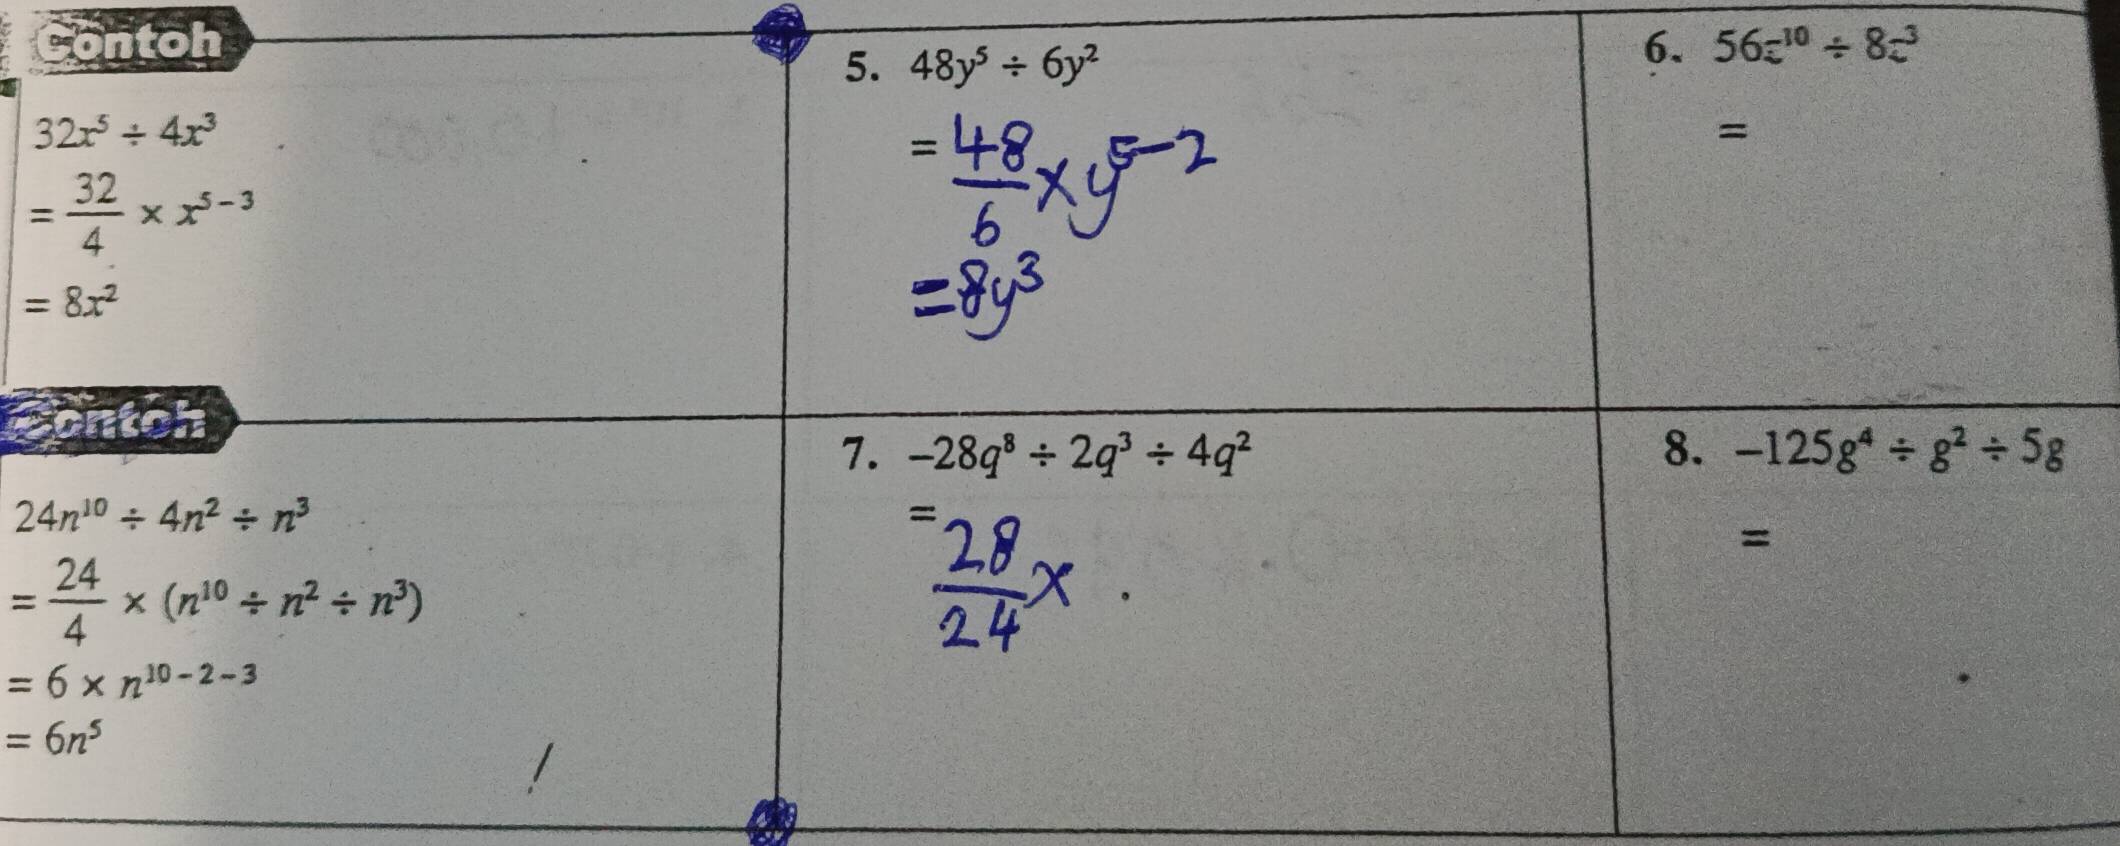 Contoh
32x⁵ ÷ 4x³
= 32/4 × x⁵⁻³
= 8x²
5. 48y⁵ ÷ 6y²
= 48/6 × y⁵⁻²
= 8y³
6. 56z¹⁰ ÷ 8z³
=
Contoh
24n¹⁰ ÷ 4n² ÷ n³
= 24/4 × (n¹⁰ ÷ n² ÷ n³)
= 6 × n¹⁰⁻²⁻³
= 6n⁵
7. –28q⁸ ÷ 2q³ ÷ 4q²
= 28/24 ×
8. –125g⁴ ÷ g² ÷ 5g
=